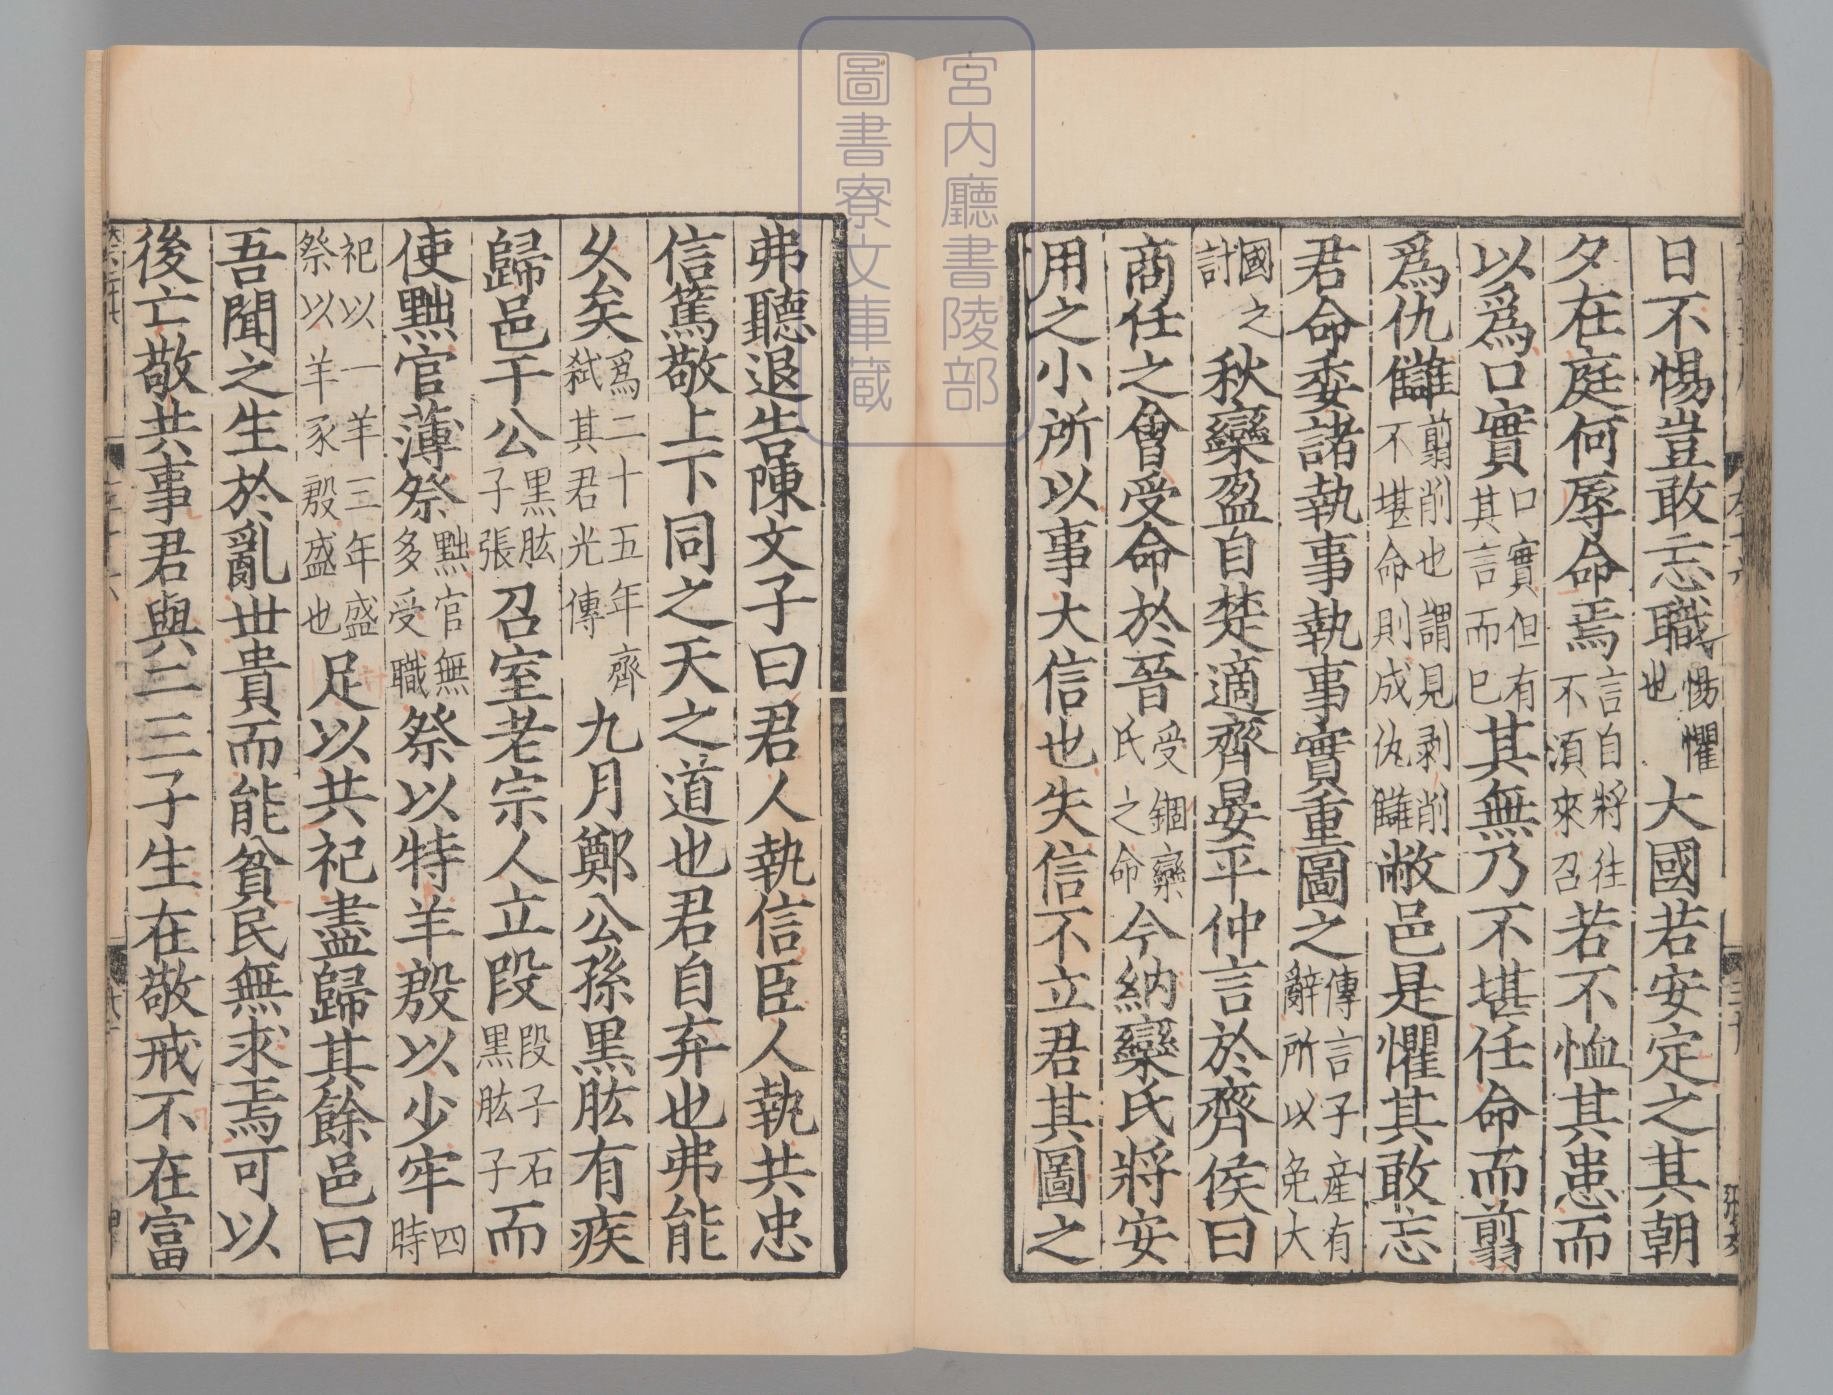 日不惕豈敢忘職惕懼也大國若安定之其朝
夕在庭何辱命焉言自將往不須來召若不恤其患而
以爲口實口實但有其言而已其無乃不堪任命而翦
爲仇讎翦削也謂見剥削不堪命則成仇讎敝邑是懼其敢忘
君命委諸執事執事實重圖之傳言子産有辭所以免大
國之計秋欒盈自楚適齊晏平仲言於齊侯曰
商任之會受命於晉受錮欒氏之命今納欒氏將安
用之小所以事大信也失信不立君其圖之
弗聽退告陳文子曰君人執信臣人執共忠
信篤敬上下同之天之道也君自弃也弗能
久矣爲二十五年齊弑其君光傳九月鄭公孫黑肱有疾
歸邑于公黑肱子張召室老宗人立段段子石黑肱子而
使黜官薄祭黜官無多受職祭以特羊殷以少牢四時
祀以一羊三年盛祭以羊豕殷盛也足以共祀盡歸其餘邑曰
吾聞之生於亂世貴而能貧民無求焉可以
後亡敬共事君與二三子生在敬戒不在富
宮内廳書陵部
圖書寮文庫蔵